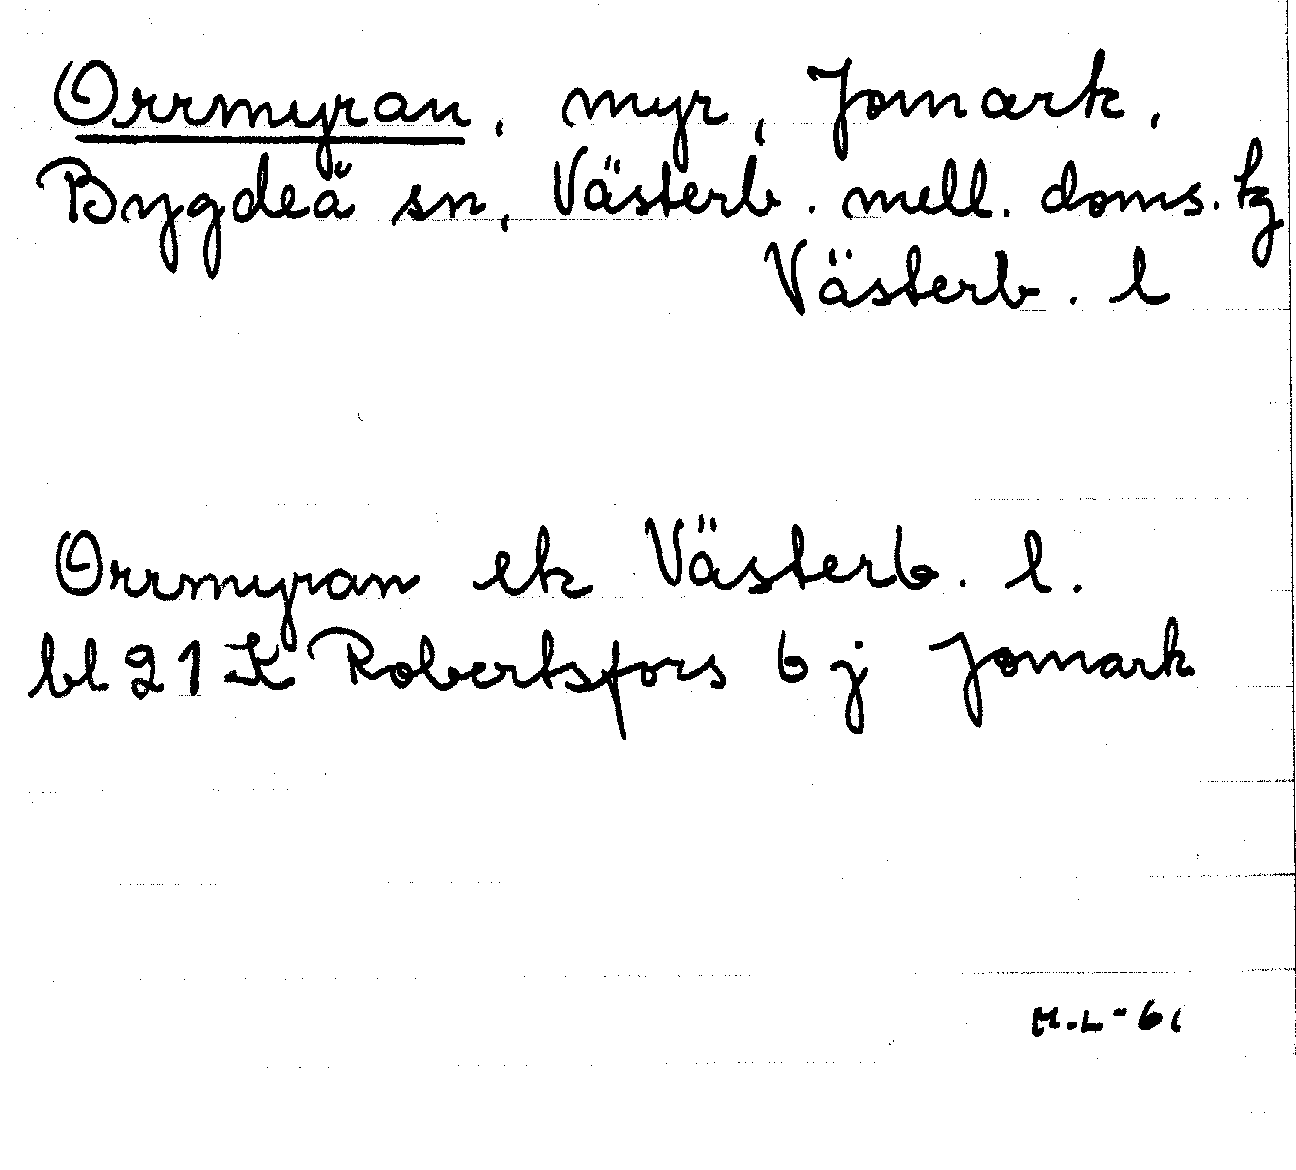 Orrmyran, myr, Jomark,
Bygdeå sn, Västerb. mell. doms. tg
Västerb. l
Orrmyran ek Västerb. l.
bl 21 K Robertsfors 6 j Jomark
H.L-61